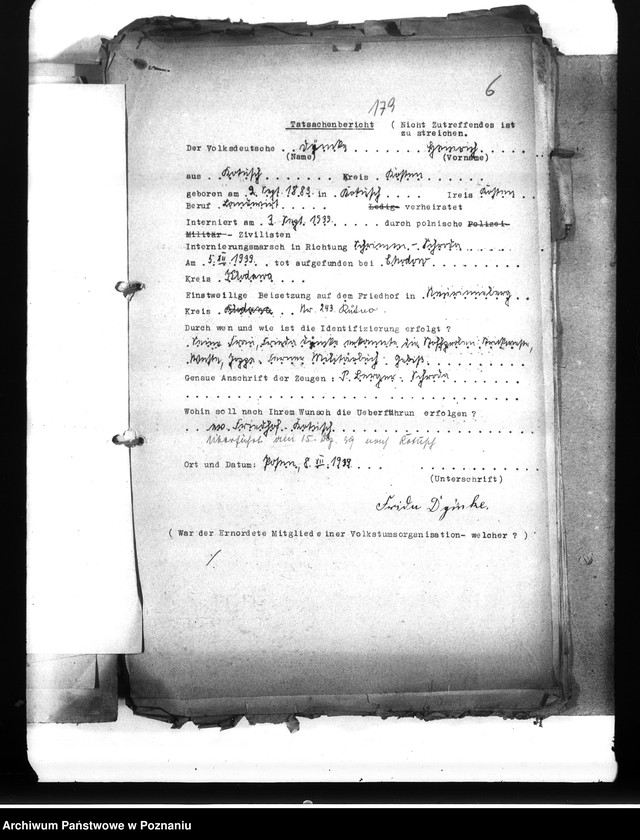 6
179
Tatsachenbericht ( Nicht Zutreffendes ist
zu streichen.
Der Volksdeutsche . . Heinrich . .
(Name) (Vorname)
aus . Kotusch . . . . . . . Kreis . Kosten . . . .
geboren am 2. Sept. 1883 in . Kotusch . . . . Kreis Kosten . .
Beruf . Landwirt . . . . . Ledig- verheiratet
Interniert am 3. Sept. 1939. . . . . . durch polnische Polizei-
Militär - Zivilisten
Internierungsmarsch in Richtung Schrimm - Schroda . . . .
Am 5. XII. 1939 . . tot aufgefunden bei . . . . . . . .
Kreis . . . .
Einstweilige Beisetzung auf dem Friedhof in . . .
Kreis . . . Nr. 243 Kutno
Durch wen und wie ist die Identifizierung erfolgt ?
Seine Frau, Frieda erkannte die
Weste, Militärbuch . Gebiß . . . .
Genaue Anschrift der Zeugen : P. Berger - Schroda . . . .
Wohin soll nach Ihrem Wunsch die Ueberführun erfolgen ?
. . ev. Friedhof . Kotusch . . . .
Überführt am 15. 39 nach Kotusch
Ort und Datum: Posen, 8. XII. 1939 . . .
(Unterschrift)
Frida
( War der Ernordete Mitglied einer Volkstumsorganisation- welcher ? )
Archiwum Państwowe w Poznaniu